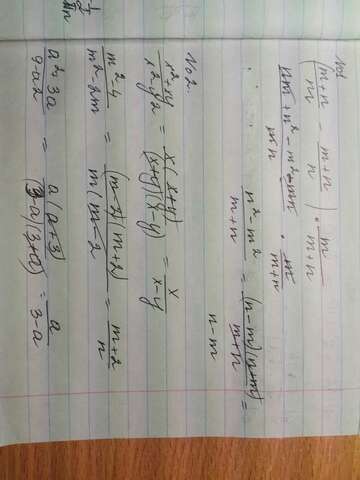 №1
(m+n/m - m+n/n) · m/m+n
nm + n² - m² - mn/mn · m/m+n
n² - m²/m+n = (n-m)(n+m)/m+n =
n-m
№2.
x²+xy/x²-y² = x(x+y)/(x+y)(x-y) = x/x-y
m²-4/m²-2m = (m-2)(m+2)/m(m-2 = m+2/n
a²+3a/9-a2 = a(a+3)/(3-a)(3+a) = a/3-a